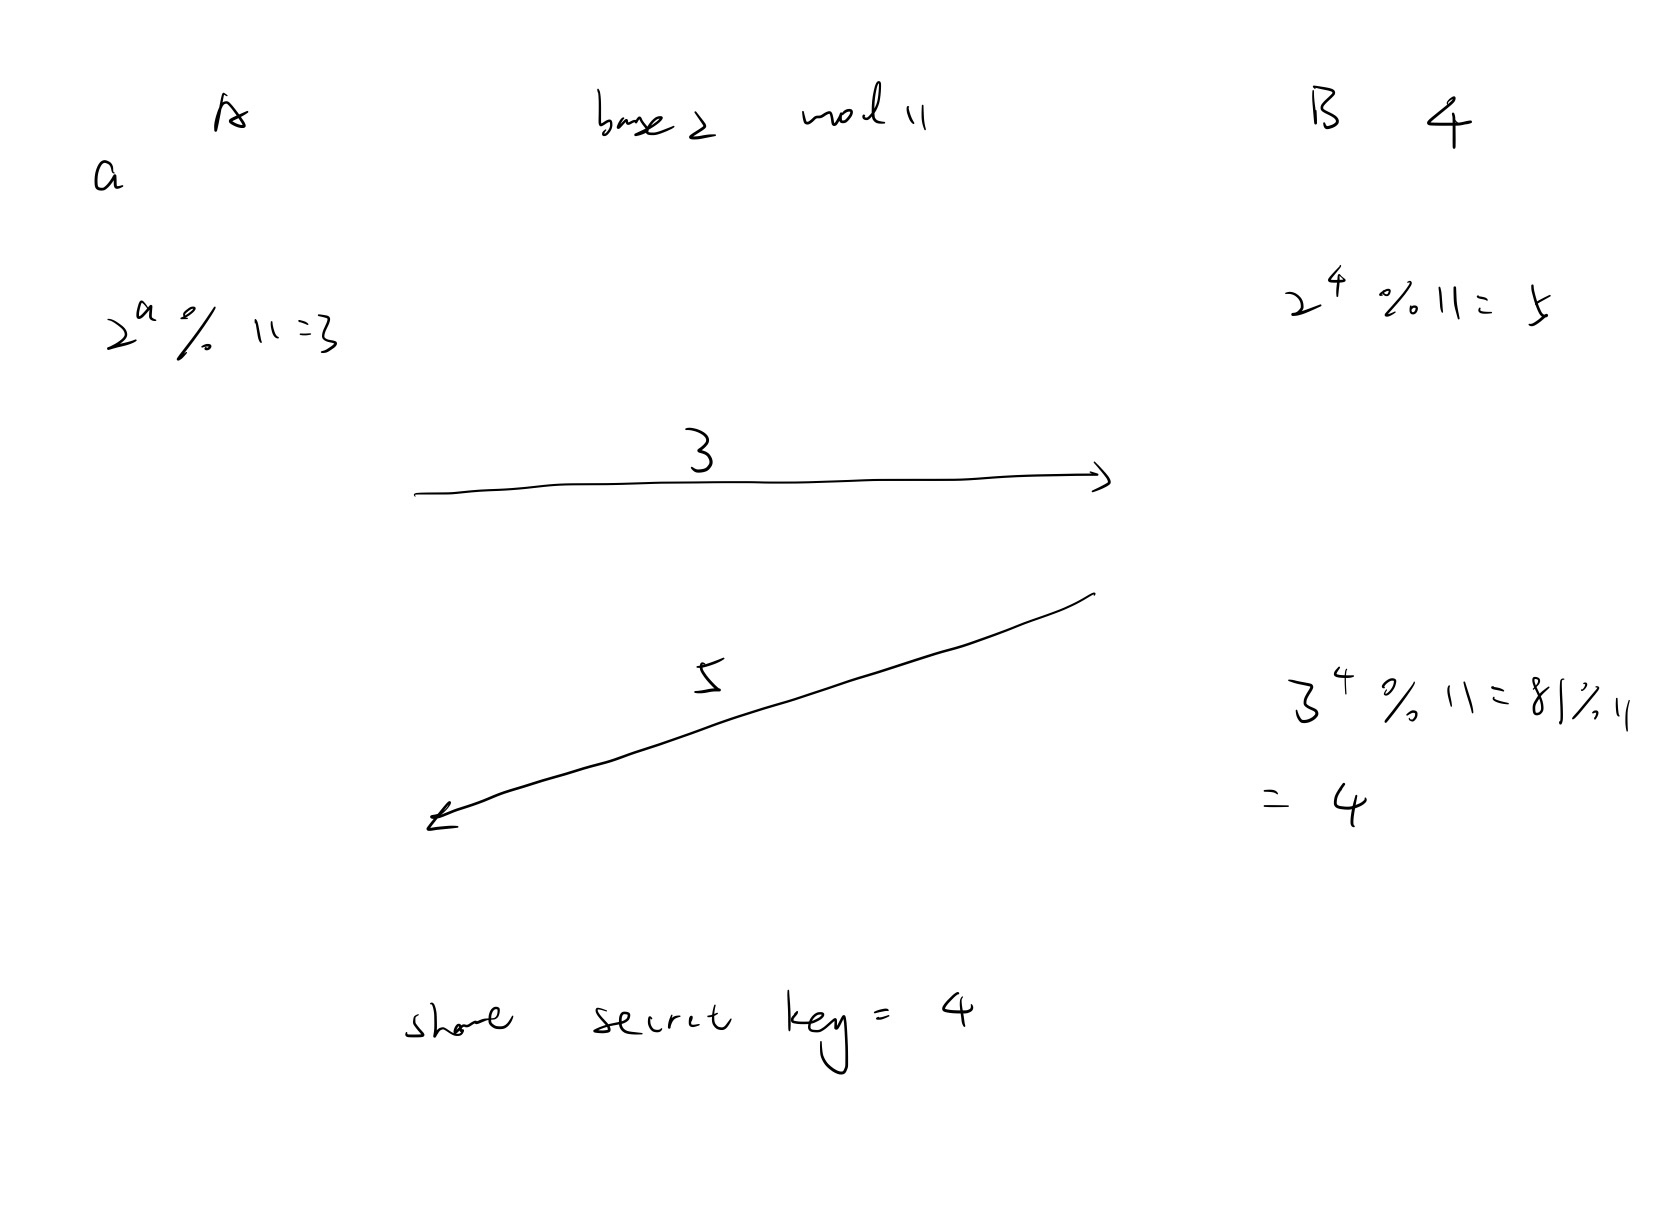 A base 2 mod 11 B 4
a
2^a % 11 = 3
2^4 % 11 = 5
3
5
3^4 % 11 = 81 % 11
= 4
share secret key = 4